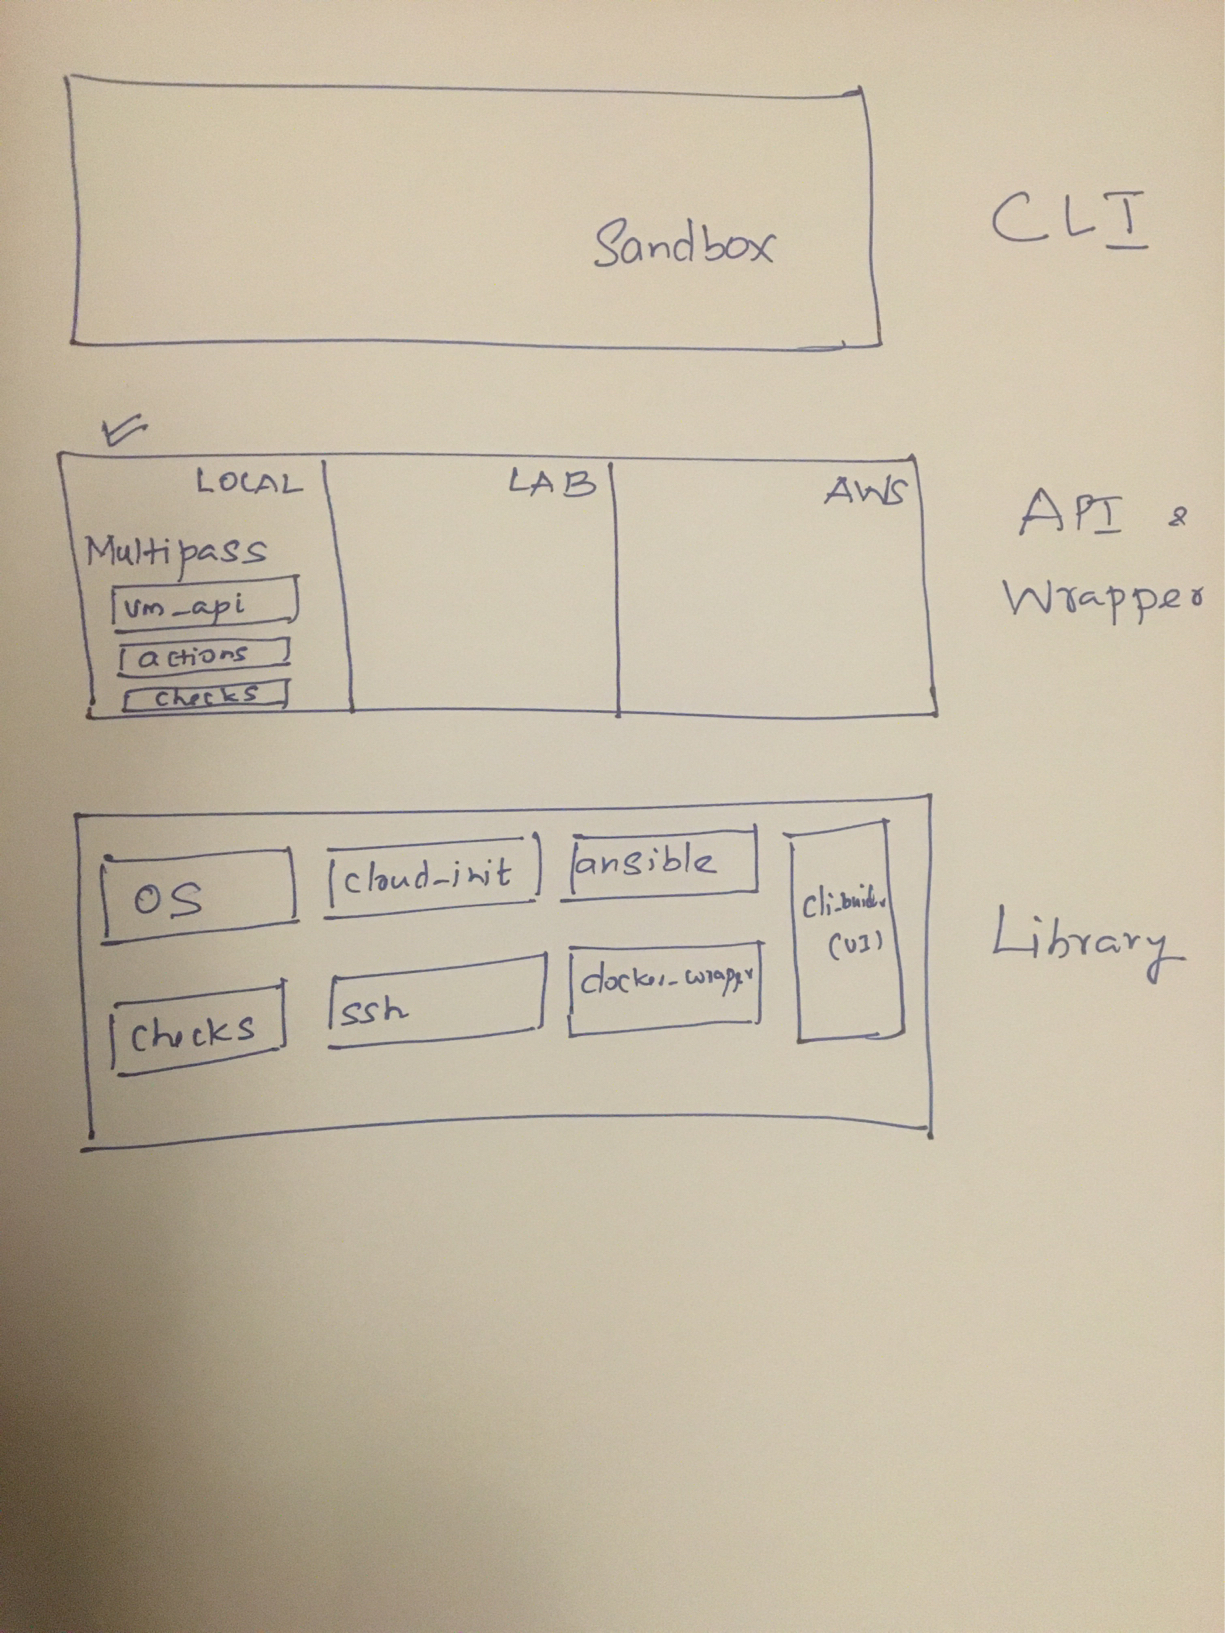 Sandbox
CLI
LOCAL
LAB
AWS
Multipass
vm_api
actions
checks
API &
Wrapper
OS
cloud_init
ansible
(UI)
checks
ssh
docker_wrapper
Library